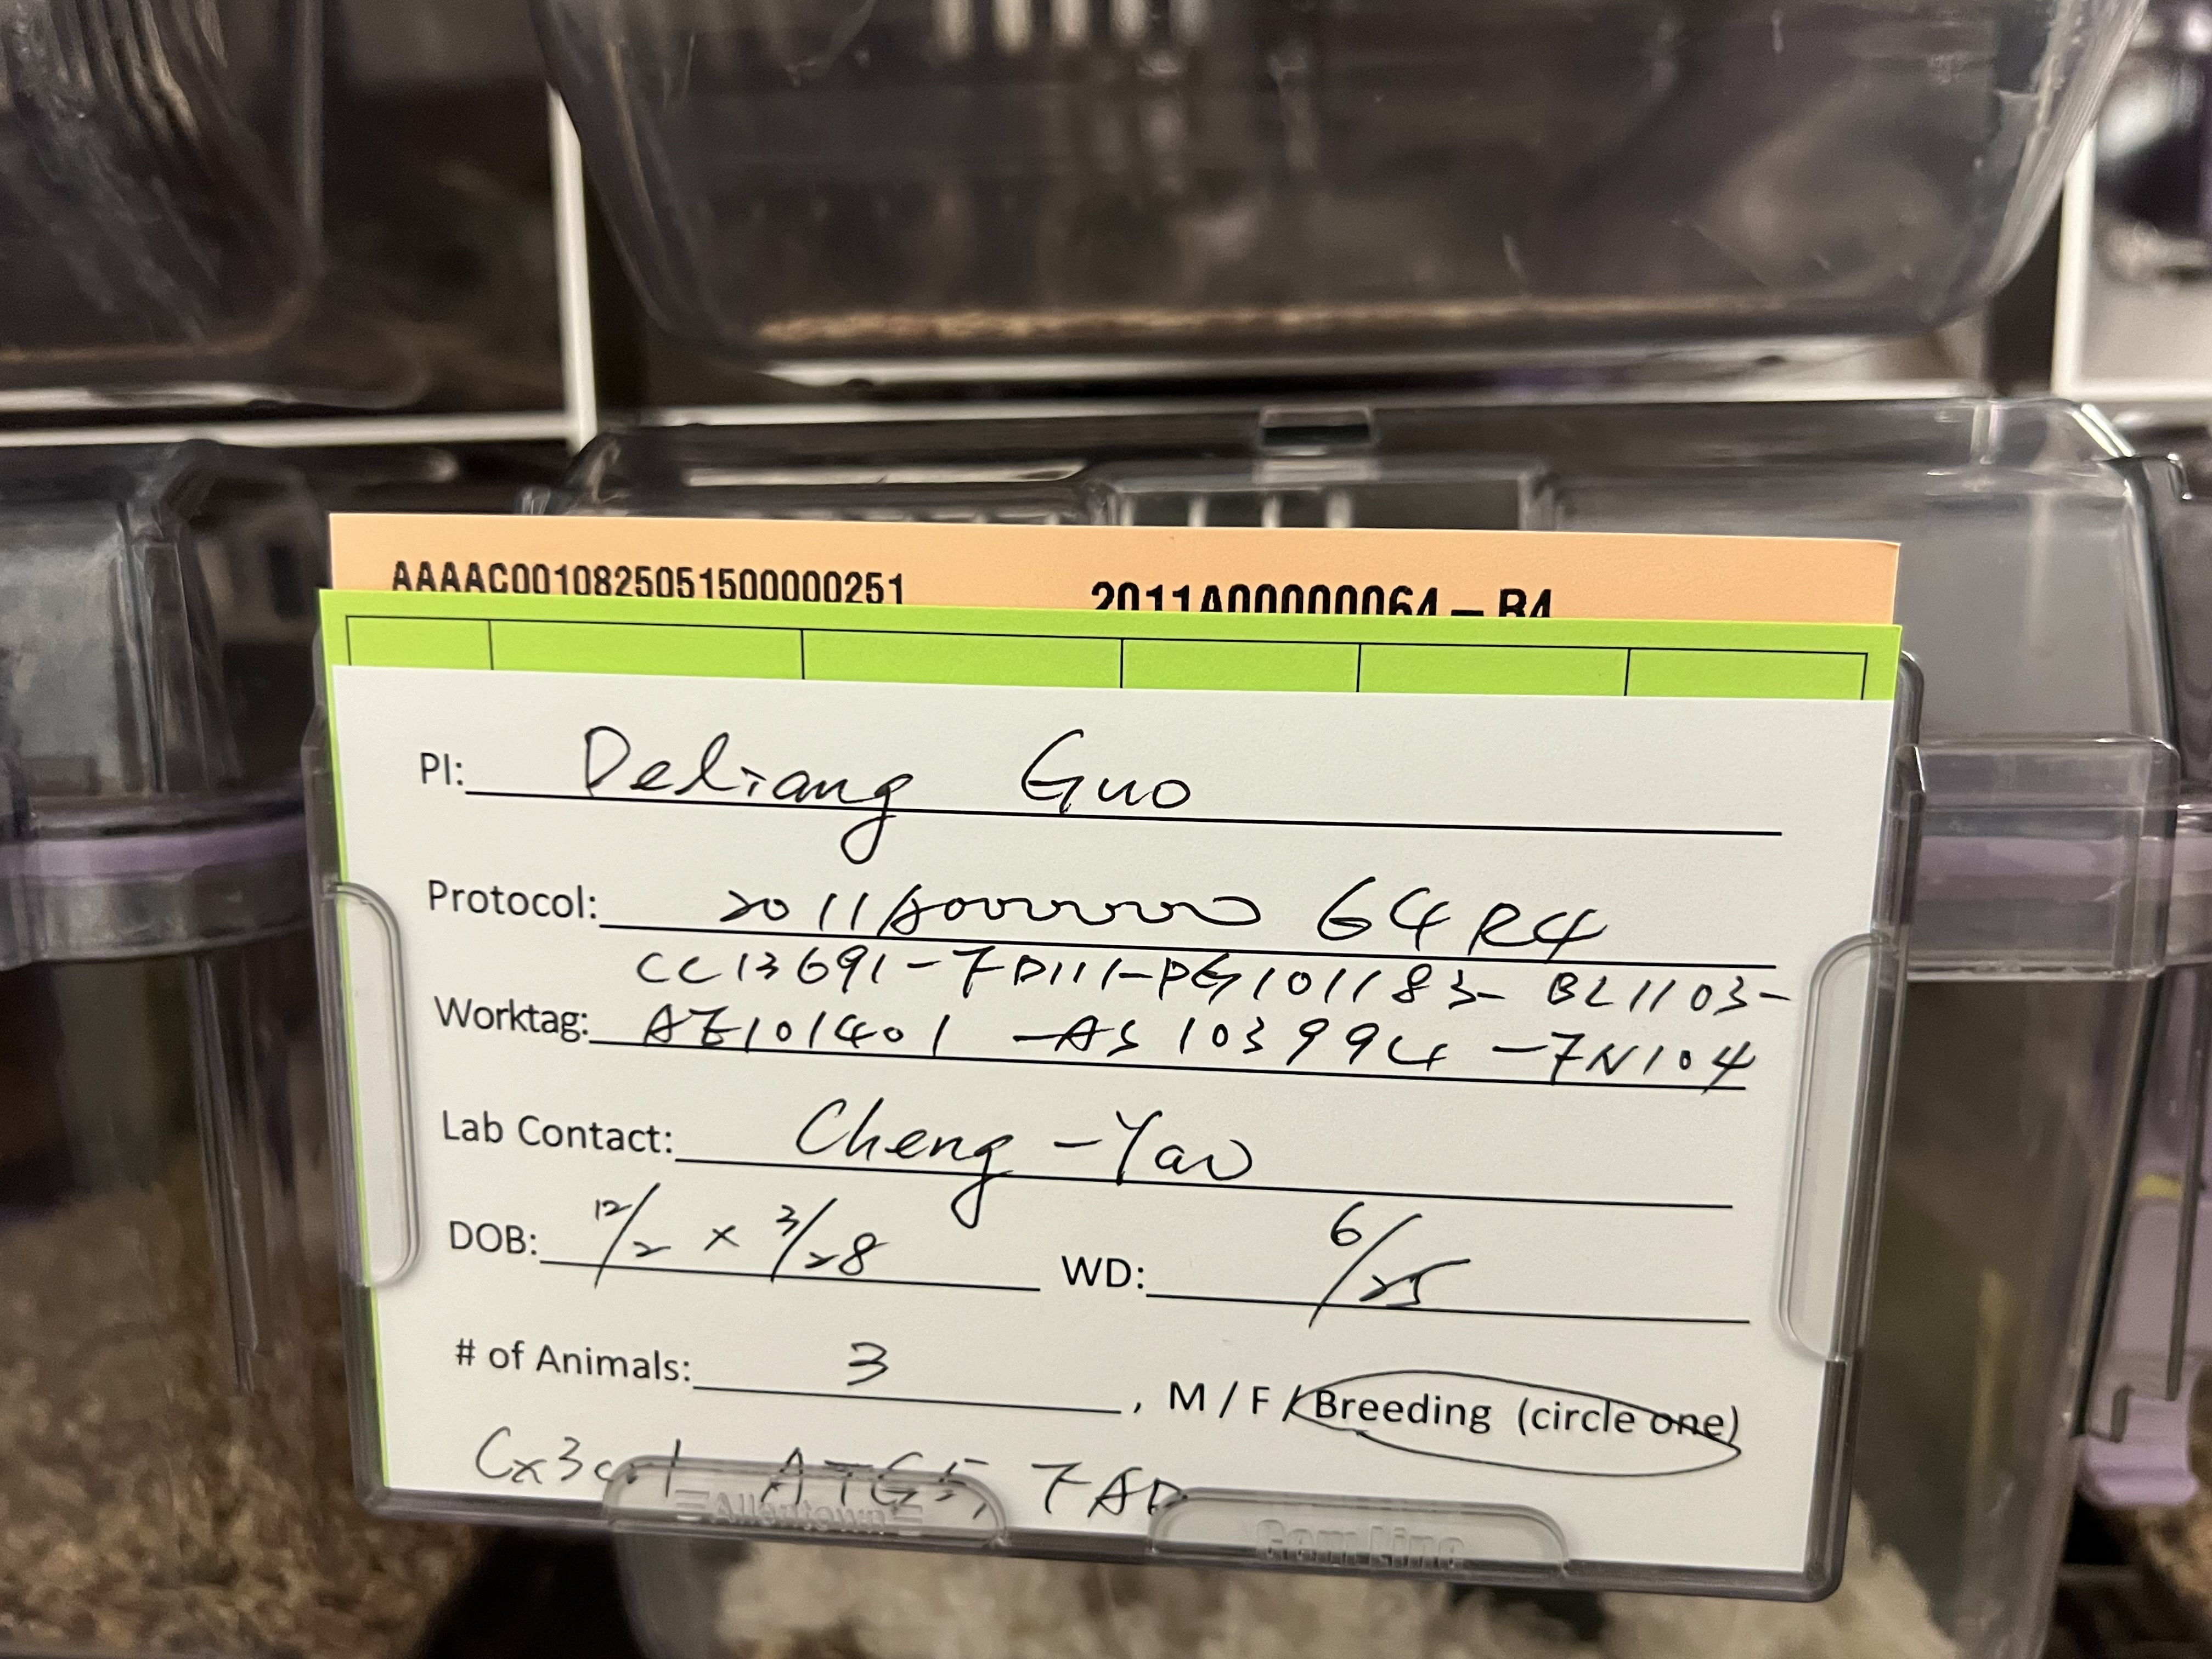 AAAAC00108250515000000251
2011A00000064 – R4
PI: Deliang Guo
Protocol: 2011A00000064R4
CC13691-FD111-PG101183-BL1103-
Worktag: AE101401-AS103994-FN104
Lab Contact: Cheng-Yao
DOB: 12/2 x 3/28 WD: 6/25
# of Animals: 3 , M / F / Breeding (circle one)
Cx3cr1 ATG5, FAD
Allentown
Gem Line